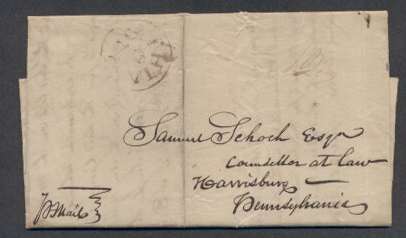 Samuel Schoch Esqr
Counsellor at Law
Harrisburg
Pennsylvania
p Mail